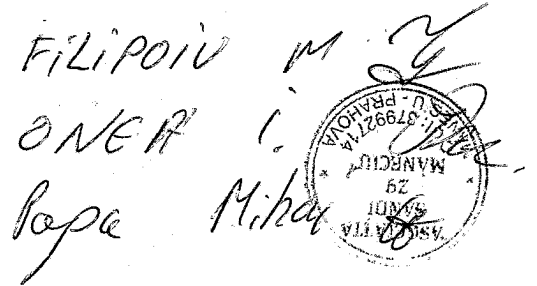 FILIPOIU M.
ONEA I.
Popa Mihai
ASOCIATIA
SANDI
29
MANRCIU
: 37992714
U - PRAHOVA